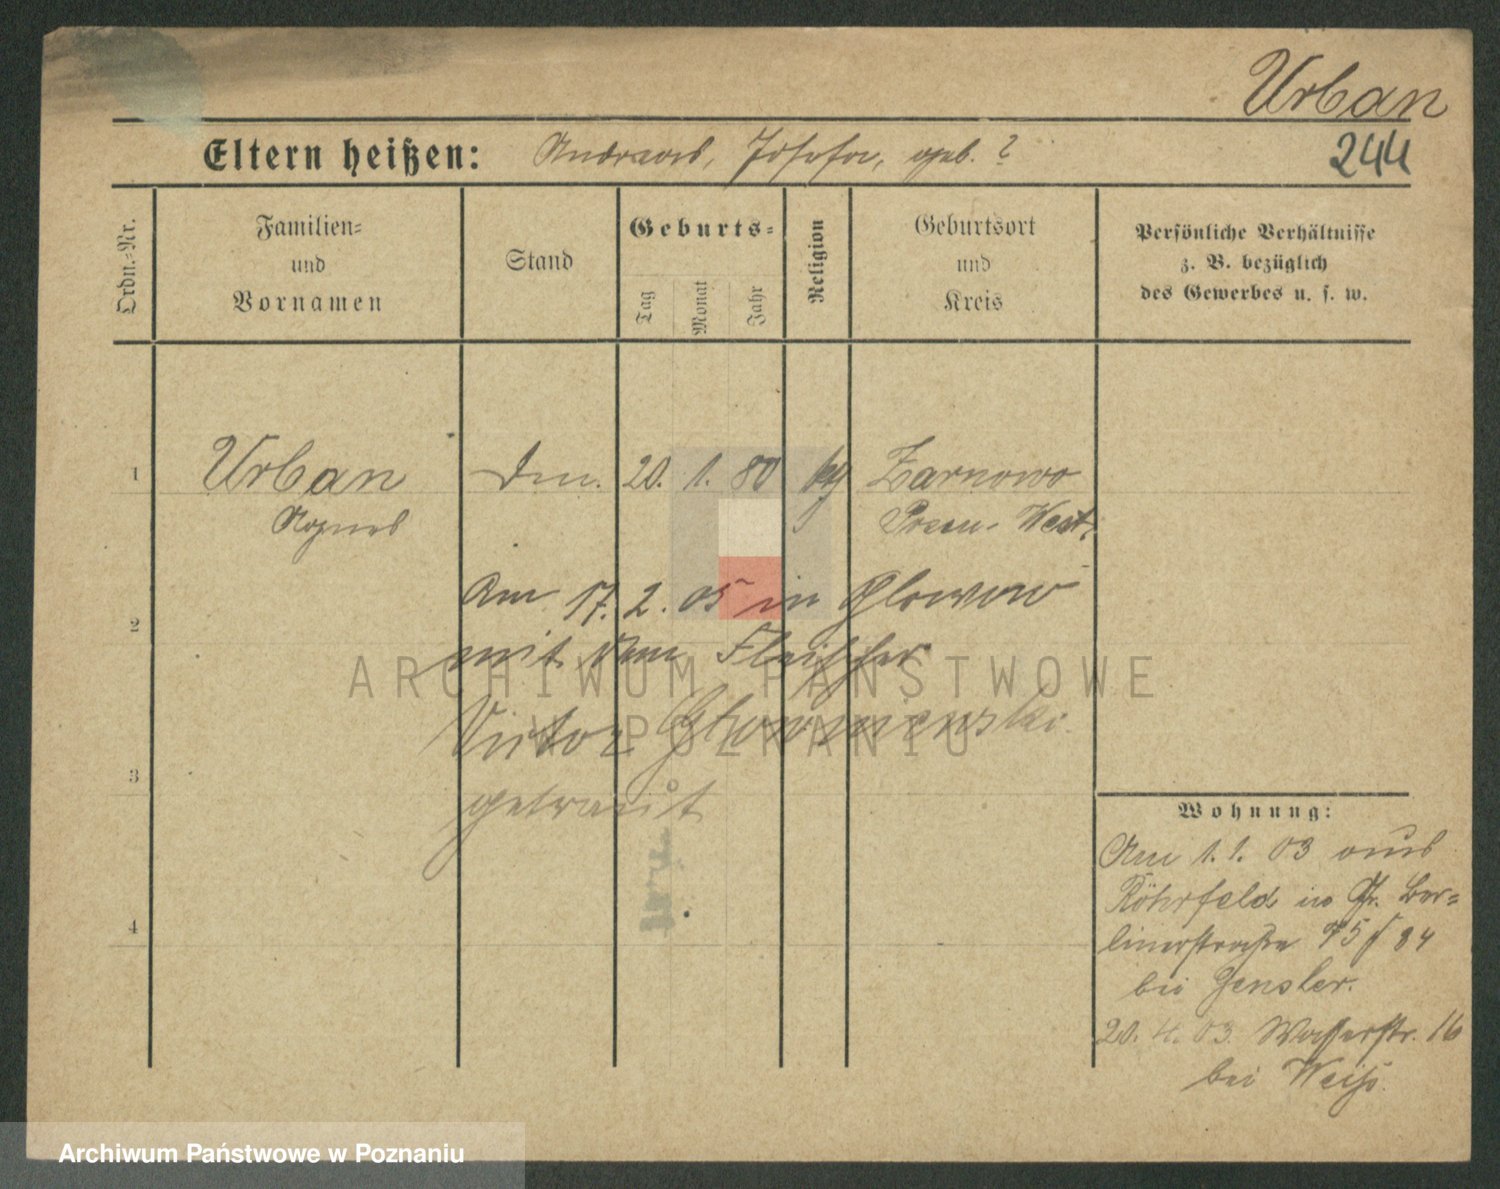 Urban
Eltern heißen: Andreas, Josefa, geb. ?
244
Ordn.-Nr.
Familien-
und
Vornamen
Stand
Geburts-
Tag
Monat
Jahr
Religion
Geburtsort
und
Kreis
Persönliche Verhältnisse
z. B. bezüglich
des Gewerbes u. s. w.
1
Urban 20. 1. 80 Zarnowo
Agnes Posen-West
2
Am 17. 2. 05 in Glowno
mit dem Fleischer
Victor
getraut
3
4
Wohnung:
Am 1. 1. 03 aus
Röhrfeld in Gr. Ber=
linerstraße 84
bei Gensler.
20. 4. 03. Wasserstr. 16
bei Weiß.
ARCHIWUM PAŃSTWOWE
W POZNANIU
Archiwum Państwowe w Poznaniu